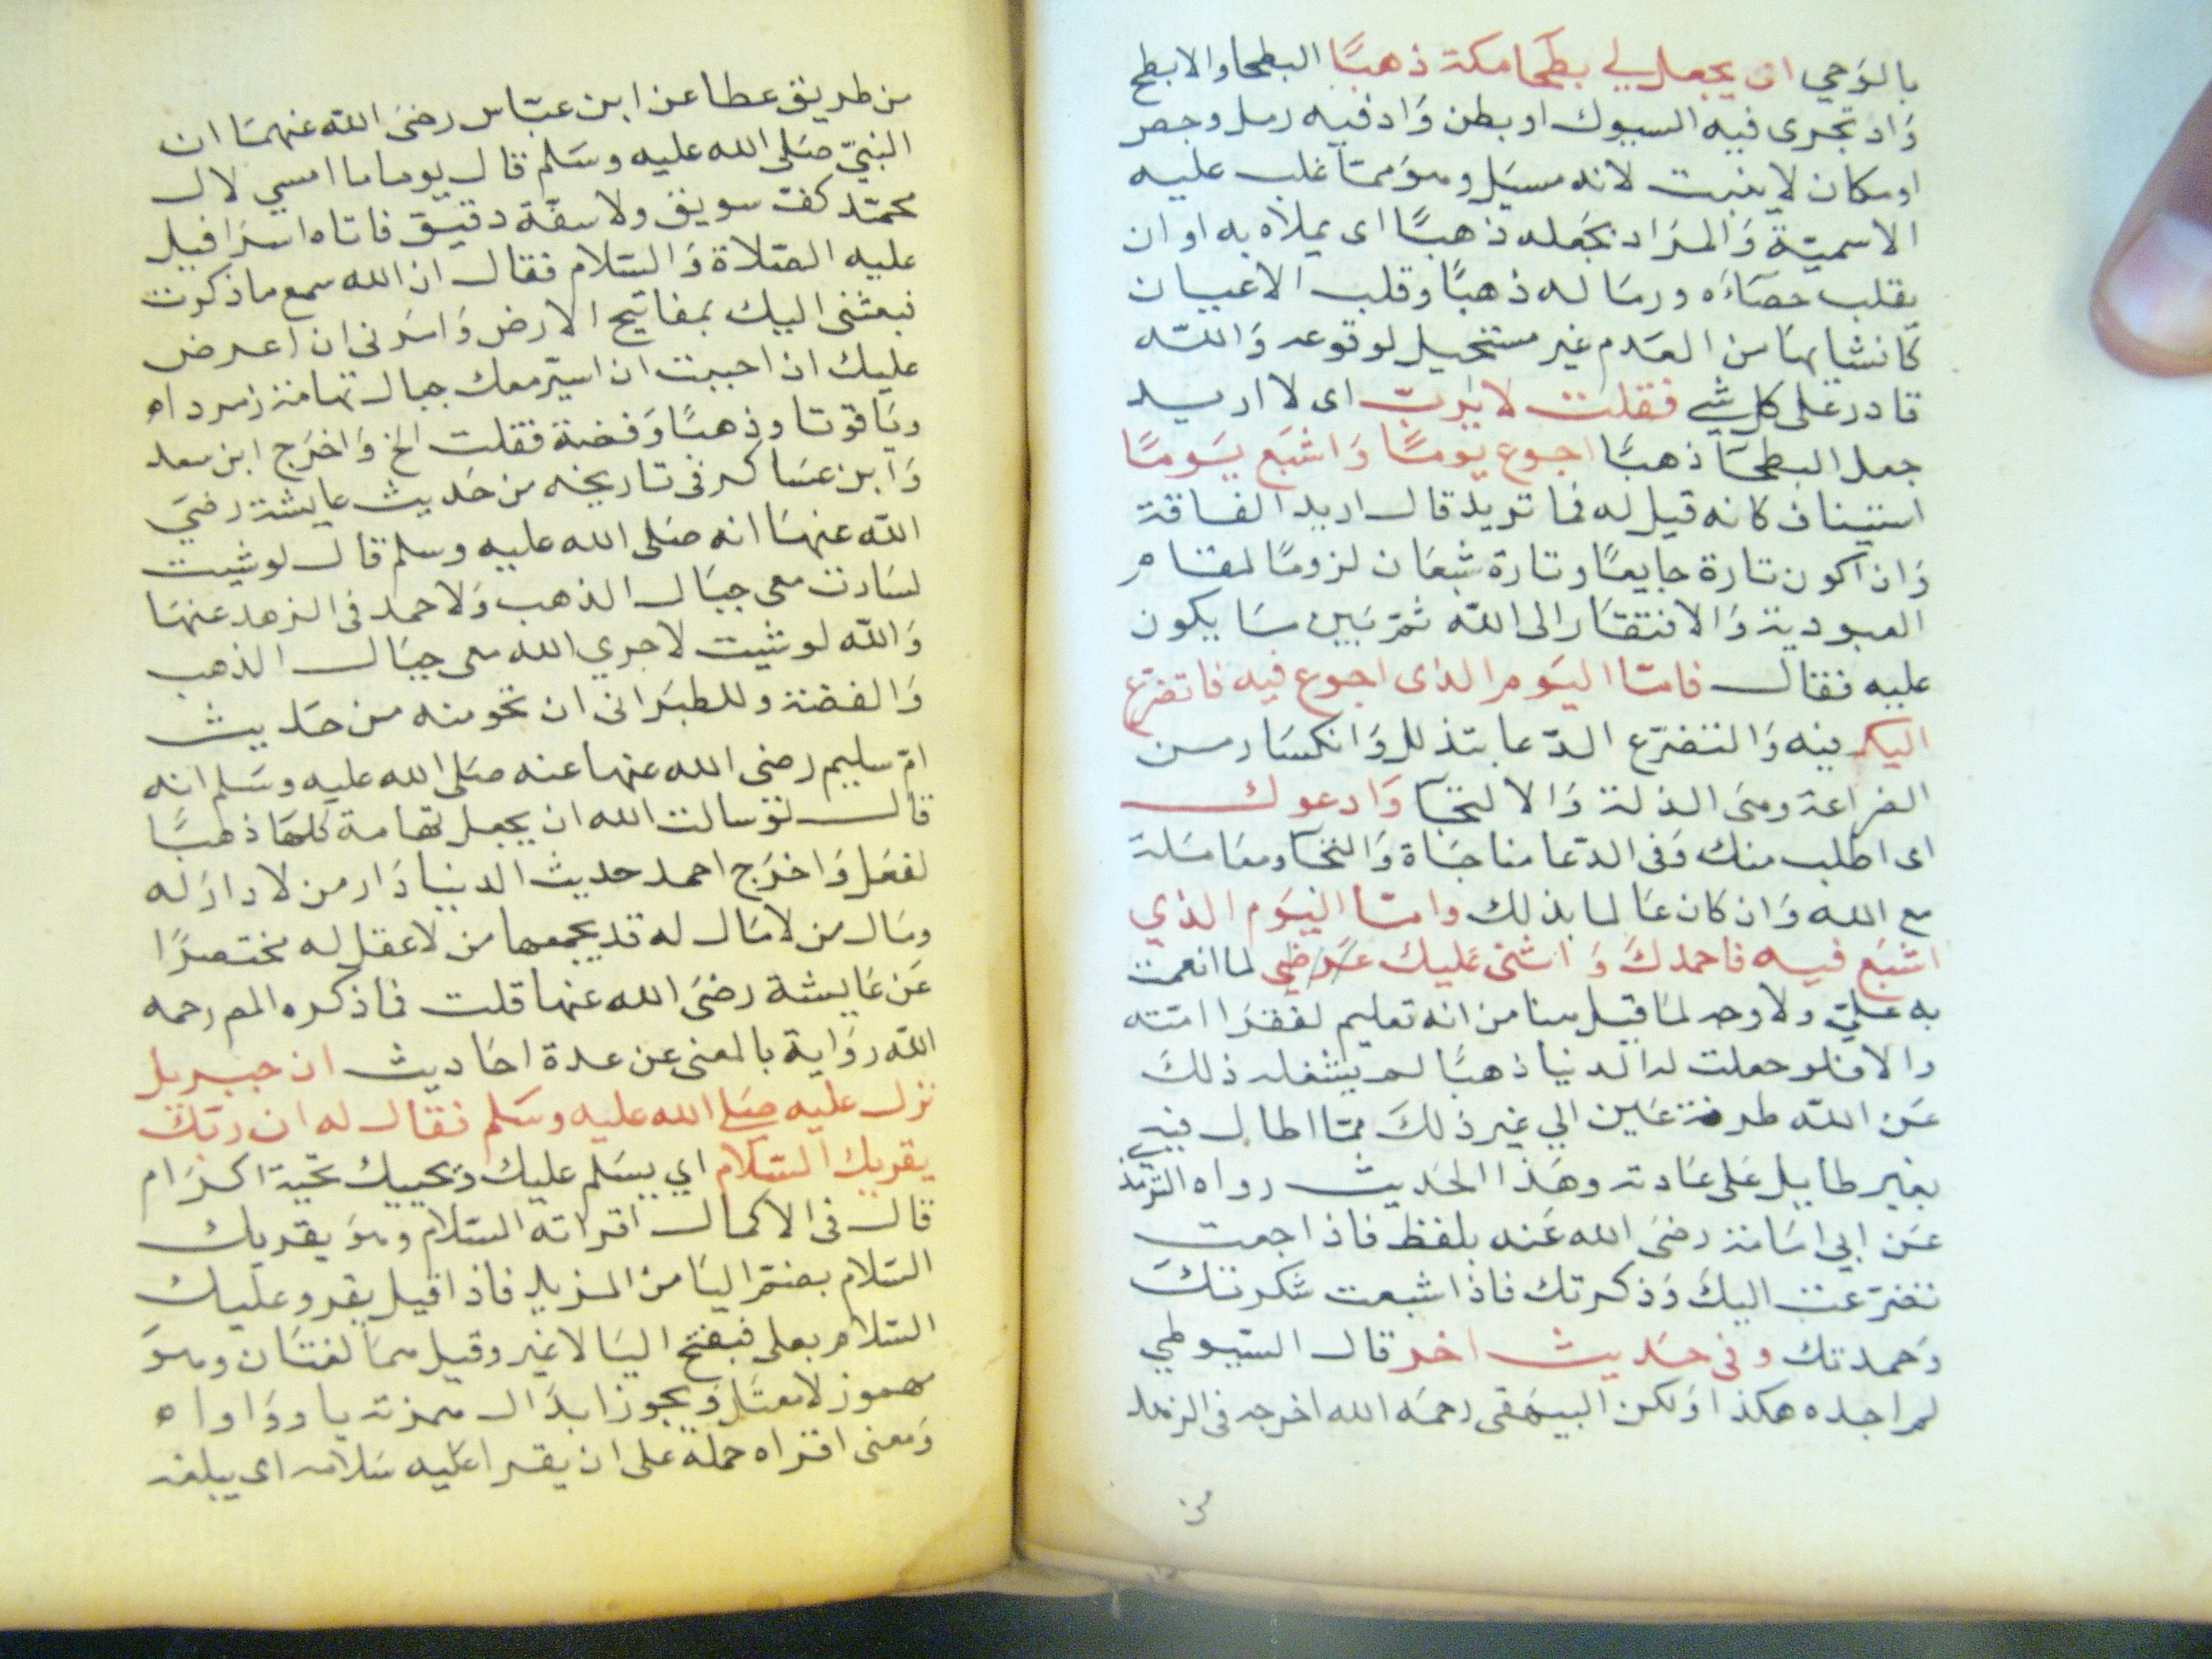 بالوحي ان يجعل لي بطحا مكة ذهبًا البطحا والابطح
وَاد تجرى فيه السيوك او بطن وَاد فيه رمل وحصر
او مكان لا ينبت لانه مسيل وهو مما غلب عليه
الاسميّة وَالمرَاد بجَعله ذهبًا اى يملاه به او ان
يقلب حصَاءَه ورمَاله ذهبًا وقلب الاعيان
كانشائها من العَدم غير مستحيل لوقوعه وَالله
قادر على كل شي فقلت لا يا ربّ اى لا اريد
جعل البطحَا ذهبًا اجوع يومًا وَاشبَع يَومًا
استيناف كانه قيل له فما تريد قال اريد الفاقة
وَان اكون تارة جايعًا وتارة شبعَان لزومًا لمقام
العبودية وَالافتقَار الى الله ثمّ بَين مَا يكون
عليه فقال فامّا اليَوم الذى اجوع فيه فاتضرّع
اليك فيه وَالتضرّع الدّعا بتذلل وَانكسَار من
الضراعة وهى الذلة وَالالتجَا وَادعوك
اى اطلب منك وَفى الدّعا مناجَاة وَالتجَاء ومعَامَلة
مع الله وَان كان عَالما بذلك وامّا اليَوم الذي
اشبَع فيه فاحمدكَ وَاثنى عَليك لما انعمت
به عليّ ولا وجه لمَا قيل هنا من انه تعليم لفقرَا امّته
والا فلو جعلت له الدنيا ذهبًا لم يشغله ذلكَ
عَن الله طرفة عَين الي غير ذلكَ ممّا اطال فيه
بغير طايل عَلى عَادته وهَذا الحَديث رواه الترمذ
عَن ابي امَامة رضيَ الله عَنه بلفظ فاذا جعت
تضرّعت اليكَ وَذكرتك فاذا شبعت شكرتكَ
وَحمدتك وفى حَديث اخر قال السّيوطي
لم اجده هكذا وَلكن البيهقى رحمَه الله اخرجه فى الزهد
من
من طريق عطا عن ابن عبّاس رضيَ الله عنهمَا ان
النبيّ صَلى الله عليه وسَلم قال يوما ما امسي لال
محمّد كفّ سويق ولا سفّة دقيق فاتاه اسرَافيل
عليه الصّلاة وَالسّلام فقال ان الله سمع ما ذكرت
فبعثنى اليك بمفاتيح الارض وَامَرنى ان اعرض
عليك ان احببت ان اسيّر معك جبال تهامة زمرداه
ويَاقوتا وذهبًا وَفضة فقلت الخ وَاخرَج ابن سعد
وَابن عسَاكر فى تاريخه من حَديث عايشة رضيَ
الله عنهَا انه صَلى الله عليه وسلم قال لو شيت
لسَارت معى جبَال الذهب وَلاحمد فى الزهد عنهَا
وَالله لو شيت لاجري الله معى جبَال الذهب
وَالفضة وللطبرَانى ان نحو منه من حَديث
امّ سليم رضى الله عنها عنه صَلى الله عليه وسَلم انه
قال لو سالت الله ان يجعل تهامة كلهَا ذهبًا
لفعَل وَاخرَج احمد حديث الدنيا دَار من لا دارَ له
ومَال من لا مَال له قد يجمعها من لا عقل له مختصرًا
عَن عَايشة رضيَ الله عنها قلت فما ذكره المص رحمه
الله روَاية بالمعنى عن عدة احَاديث ان جبريل
نزل عليه صَلى الله عليه وسَلم فقال له ان ربّك
يقريك السّلام اي يسَلم عليك وَيحييك تحيّة اكرَام
قال فى الاكمال اقراته السّلام وهوَ يقريك
السّلام بضمّ اليَا من المزيد فاذا قيل يقرو عليك
السّلام بعلى فبفتح اليَا لا غير وقيل همَا لغتَان وهوَ
مهموز لا معتَل وَيجوز ابدَال همزته يا ووَاواه
وَمعنى اقراه حمله على ان يقرا عَليه سَلامه اى يبلغه